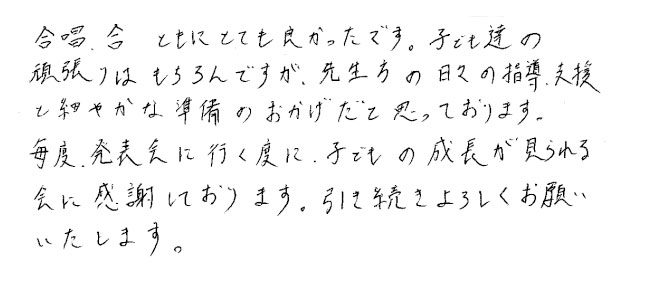 合唱、合 ともにとても良かったです。子ども達の
頑張りはもちろんですが、先生方の日々の指導、支援
と細やかな準備のおかげだと思っております。
毎度、発表会に行く度に、子どもの成長が見られる
会に感謝しております。引き続きよろしくお願い
いたします。